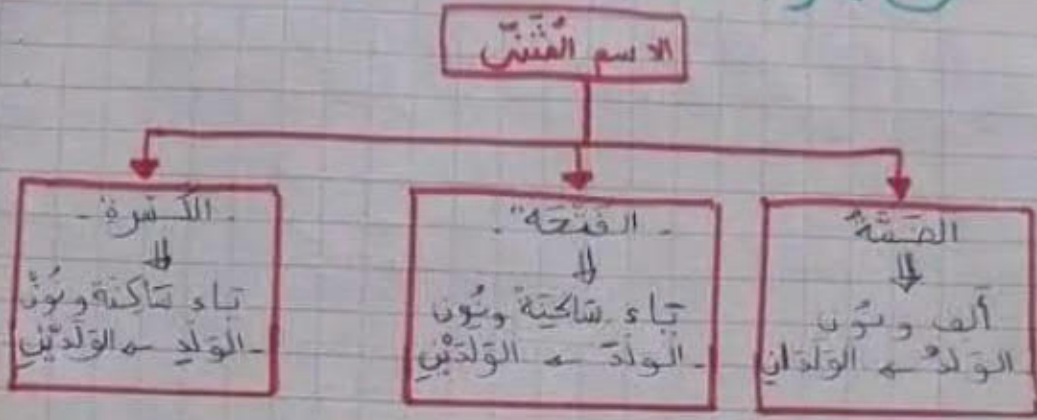 الاسم المُثَنّى
الضَمَّةُ
⇓
ألف ونون
الوَلَدُ ← الوَلَدَانِ
- الفَتْحَة -
⇓
يَاء سَاكِنَة ونُون
- الوَلَدَ ← الوَلَدَيْنِ
- الكَسْرة -
⇓
يَاء سَاكِنَة ونُونْ
- الوَلَدِ ← الوَلَدَيْنِ